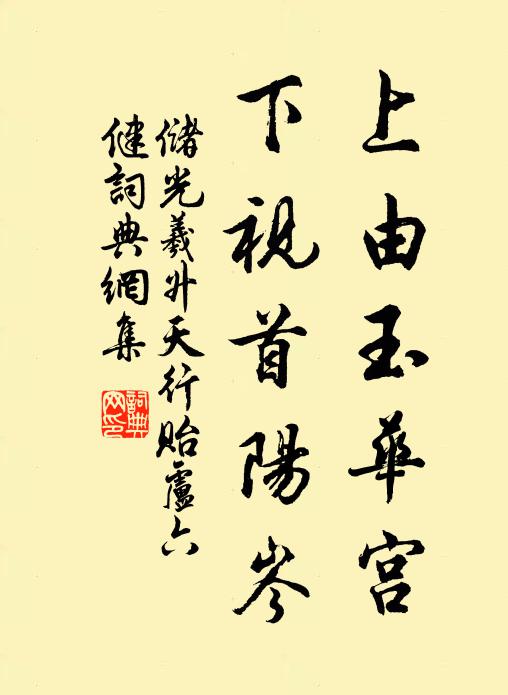 上由玉華宮
下視首陽岑
儲光羲升天行貽盧六
健詞典網集
詞典網印